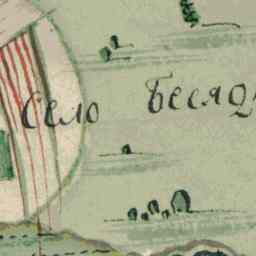 Село Бесяд